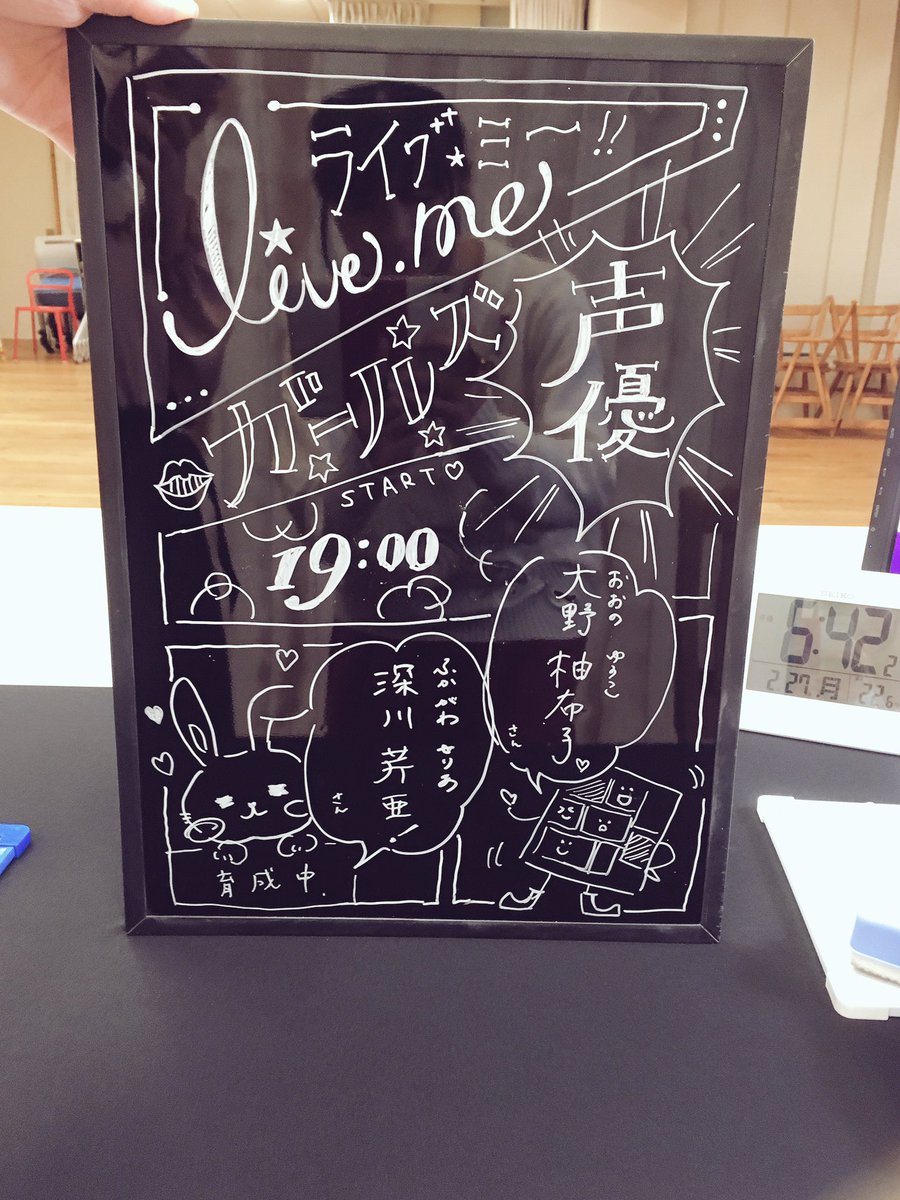 ライヴ・ミー!!
live.me
声優
ガールズ
START♡
19:00
おおの ゆうこ
大野 柚布子
さん♡
ふかがわ せりあ
深川 芹亜!
さん
育成中.
SEIKO
5:42
2 27 月 22.6